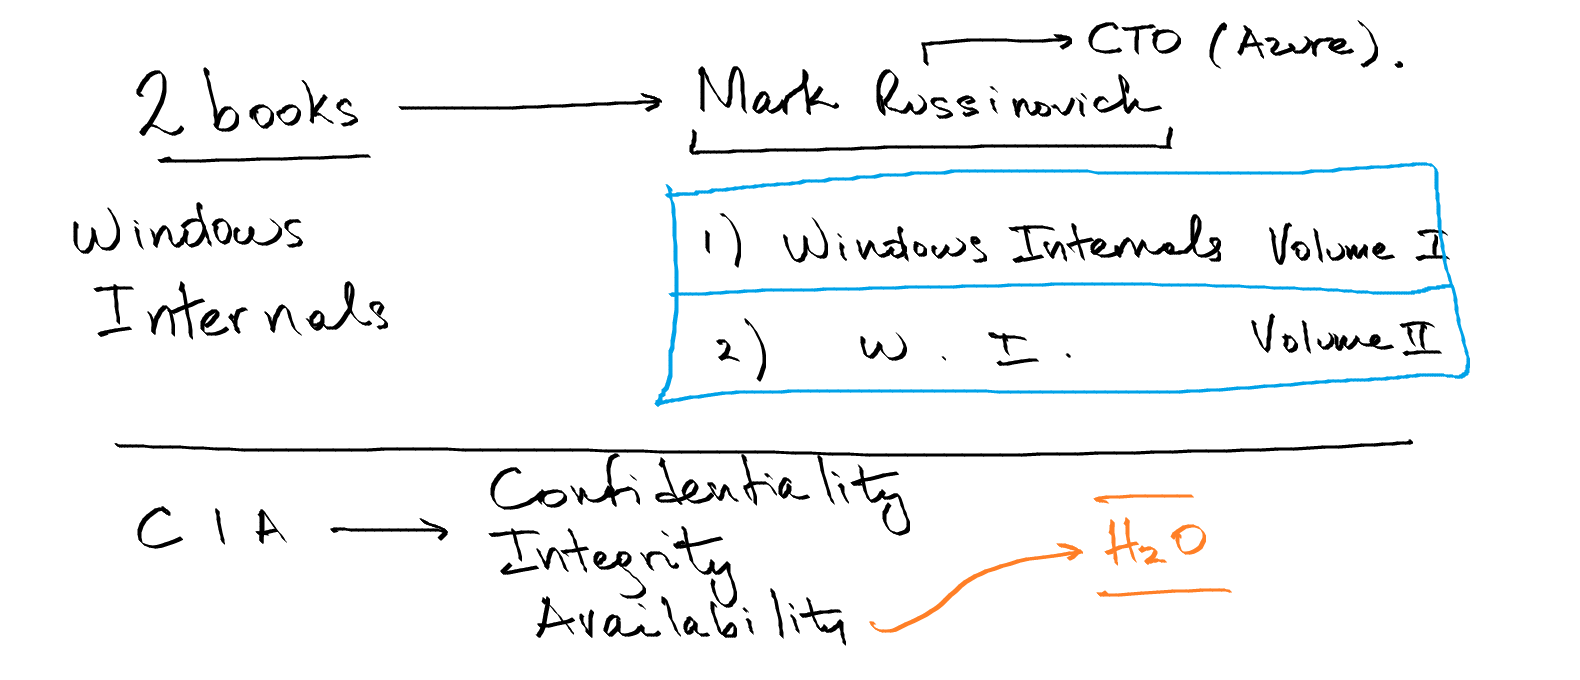 CTO (Azure).
2 books → Mark Russinovich
Windows
Internals
1) Windows Internals Volume I
2) W. I. Volume II
CIA → Confidentiality
Integrity
Availability
H2O